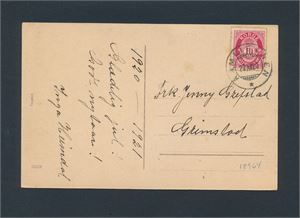 1920 – 1921
Gledelig jul!
Godt nyttaar!
Inga Heimdal
NORGE
10
Frk Jenny Grefstad
Grimstad
12964